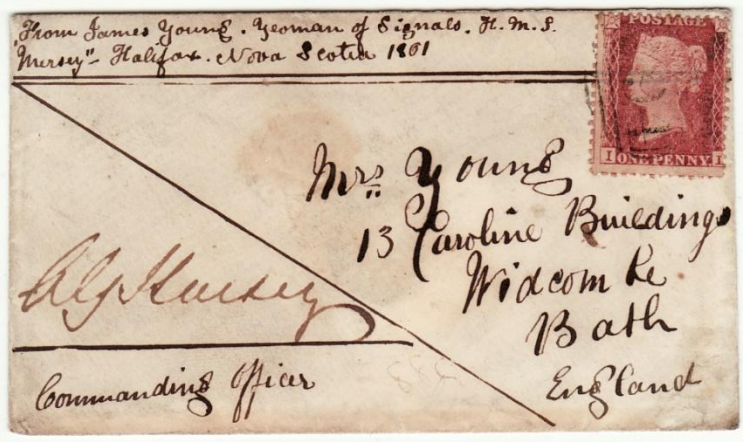 From James Young. Yeoman of Signals. H.M.S.
Mersey" Halifax. Nova Scotia 1861
POSTAGE
I ONE PENNY I
Mrs Young
13 Caroline Buildings
Widcombe
Bath
England
Commanding Officer